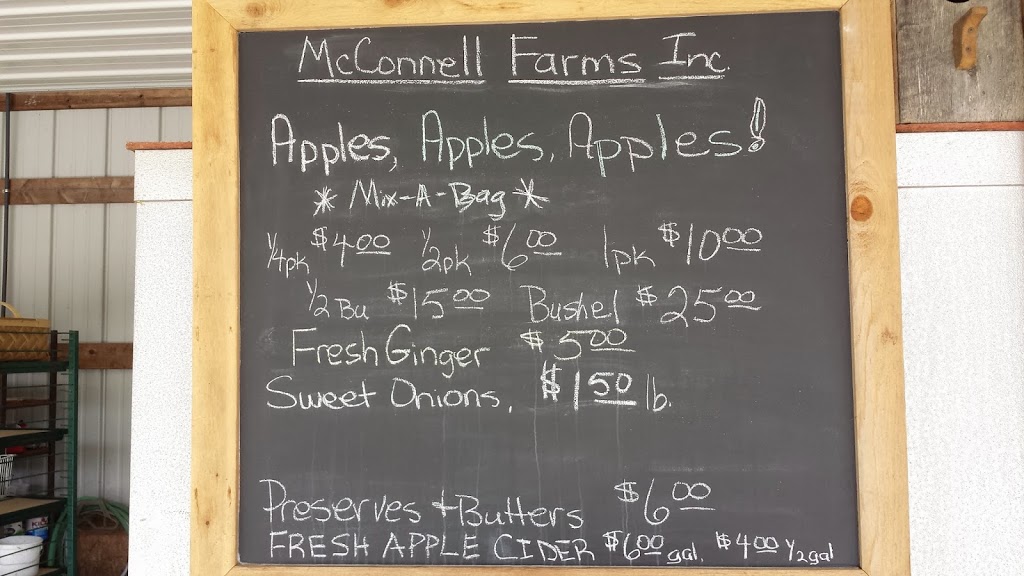 McConnell Farms Inc.
Apples, Apples, Apples!
* Mix-A-Bag *
1/4pk $4.00 1/2pk $6.00 1pk $10.00
1/2 Bu $15.00 Bushel $25.00
Fresh Ginger $5.00
Sweet Onions, $1.50 lb.
Preserves + Butters $6.00
FRESH APPLE CIDER $6.00 gal. $4.00 1/2gal